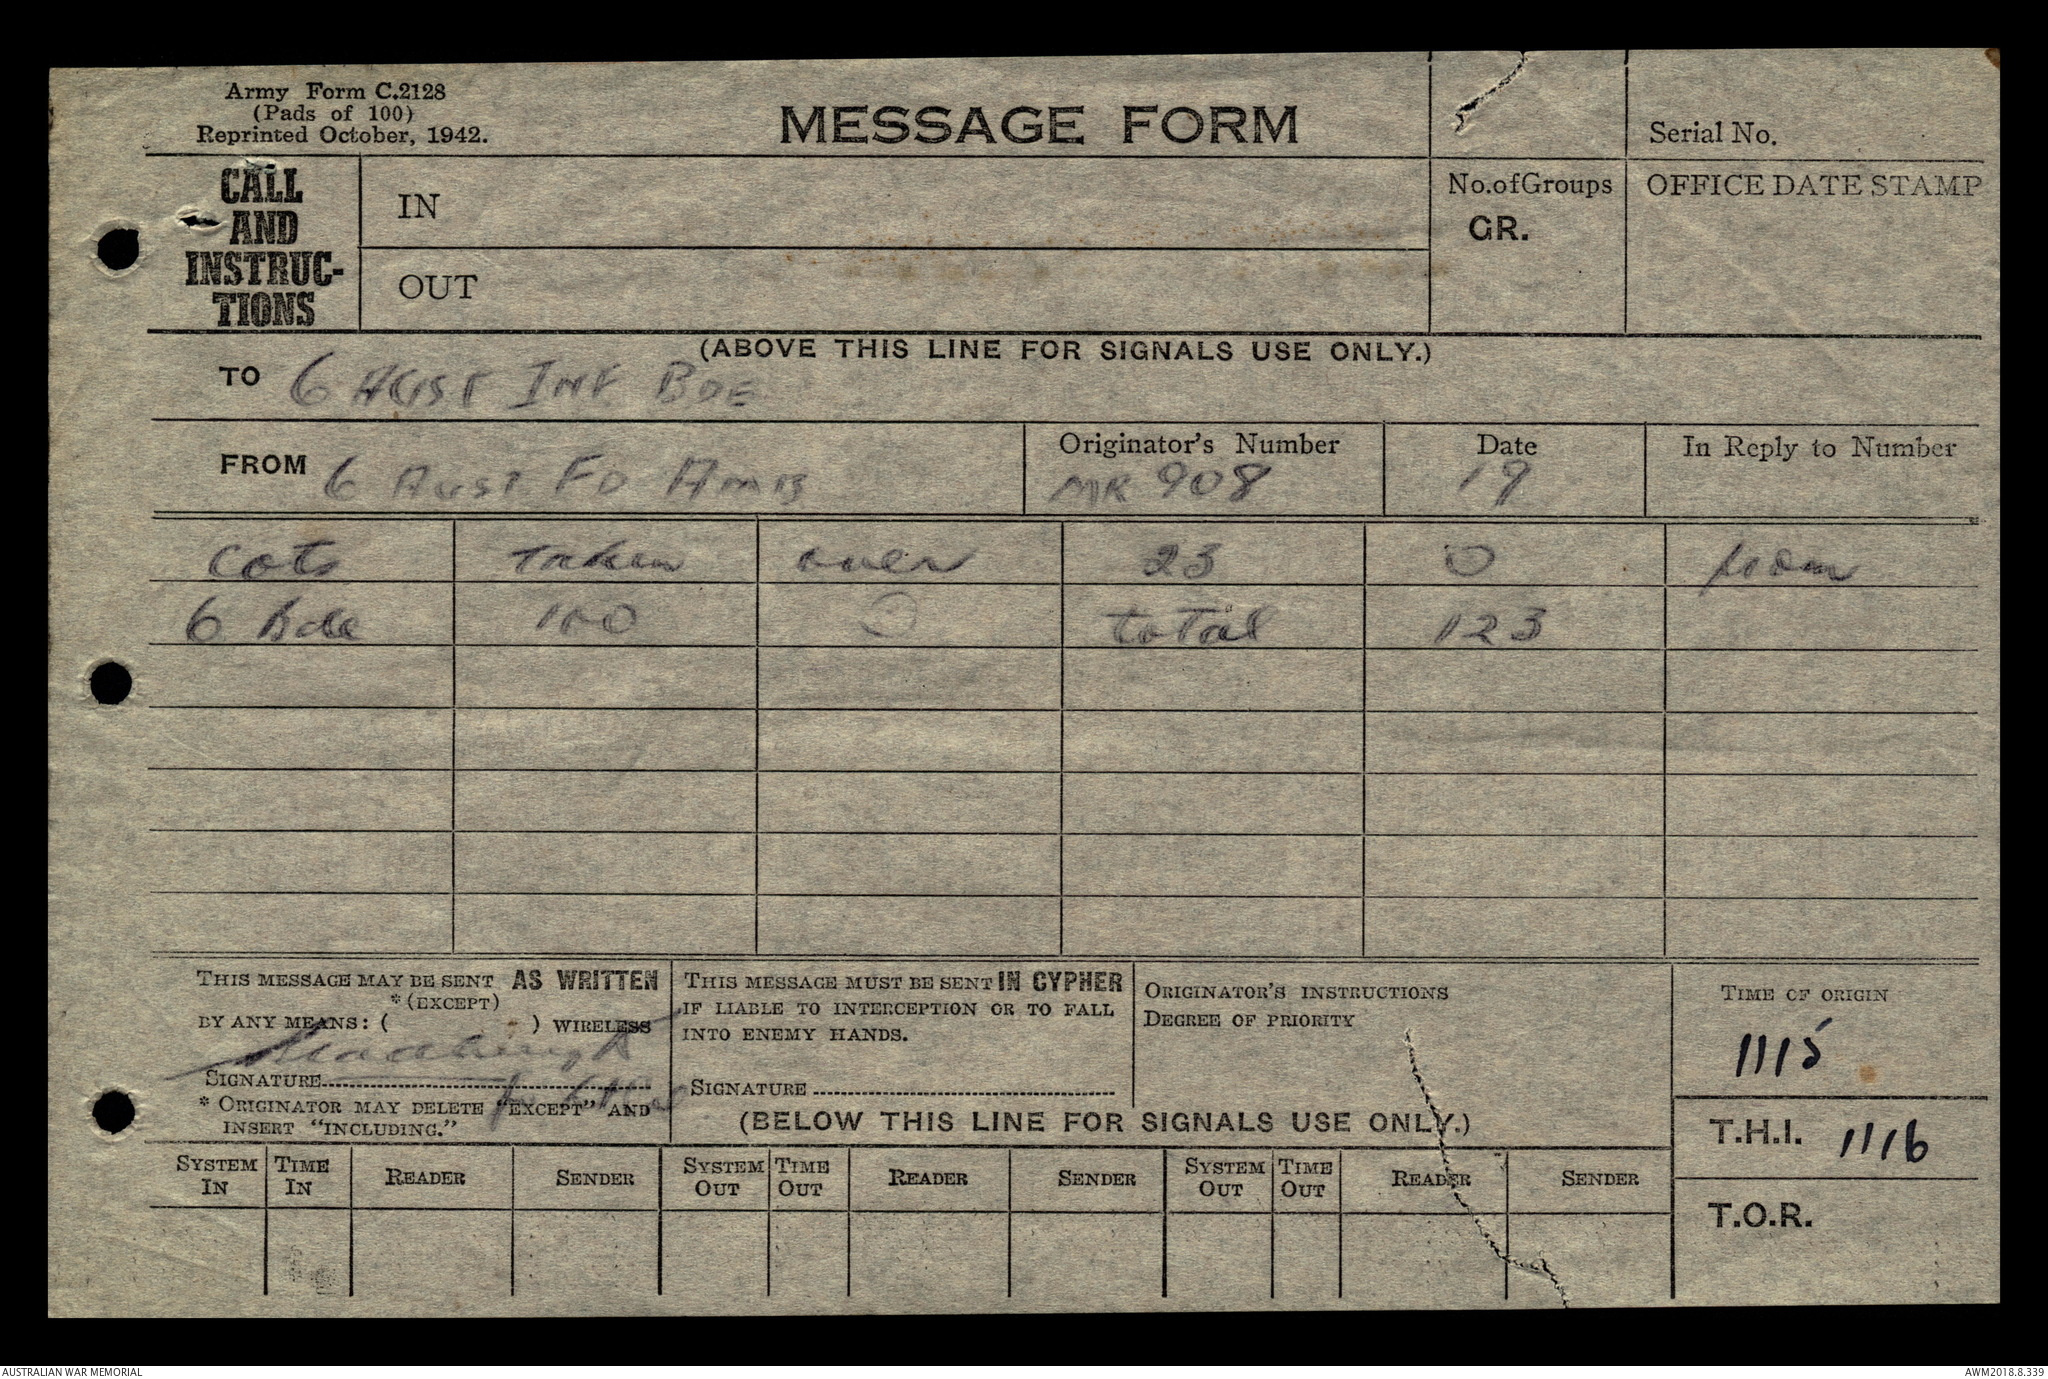 Army Form C.2128
(Pads of 100)
Reprinted October, 1942.
MESSAGE FORM
Serial No.
CALL
AND
INSTRUC-
TIONS
IN
OUT
No. of Groups
GR.
OFFICE DATE STAMP
(ABOVE THIS LINE FOR SIGNALS USE ONLY.)
TO 6 AUST INF BDE
FROM 6 AUST FD AMB
Originator's Number
MR 908
Date
19
In Reply to Number
cots taken over 23 0 from
6 Bde 100 0 total 123
THIS MESSAGE MAY BE SENT AS WRITTEN
*(EXCEPT)
BY ANY MEANS: ( ) WIRELESS
SIGNATURE
* ORIGINATOR MAY DELETE "EXCEPT" AND
INSERT "INCLUDING."
THIS MESSAGE MUST BE SENT IN CYPHER
IF LIABLE TO INTERCEPTION OR TO FALL
INTO ENEMY HANDS.
SIGNATURE
ORIGINATOR'S INSTRUCTIONS
DEGREE OF PRIORITY
TIME OF ORIGIN
1115
(BELOW THIS LINE FOR SIGNALS USE ONLY.)
T.H.I. 1116
T.O.R.
SYSTEM IN TIME IN READER SENDER SYSTEM OUT TIME OUT READER SENDER SYSTEM OUT TIME OUT READER SENDER
AUSTRALIAN WAR MEMORIAL
AWM2018.8.339